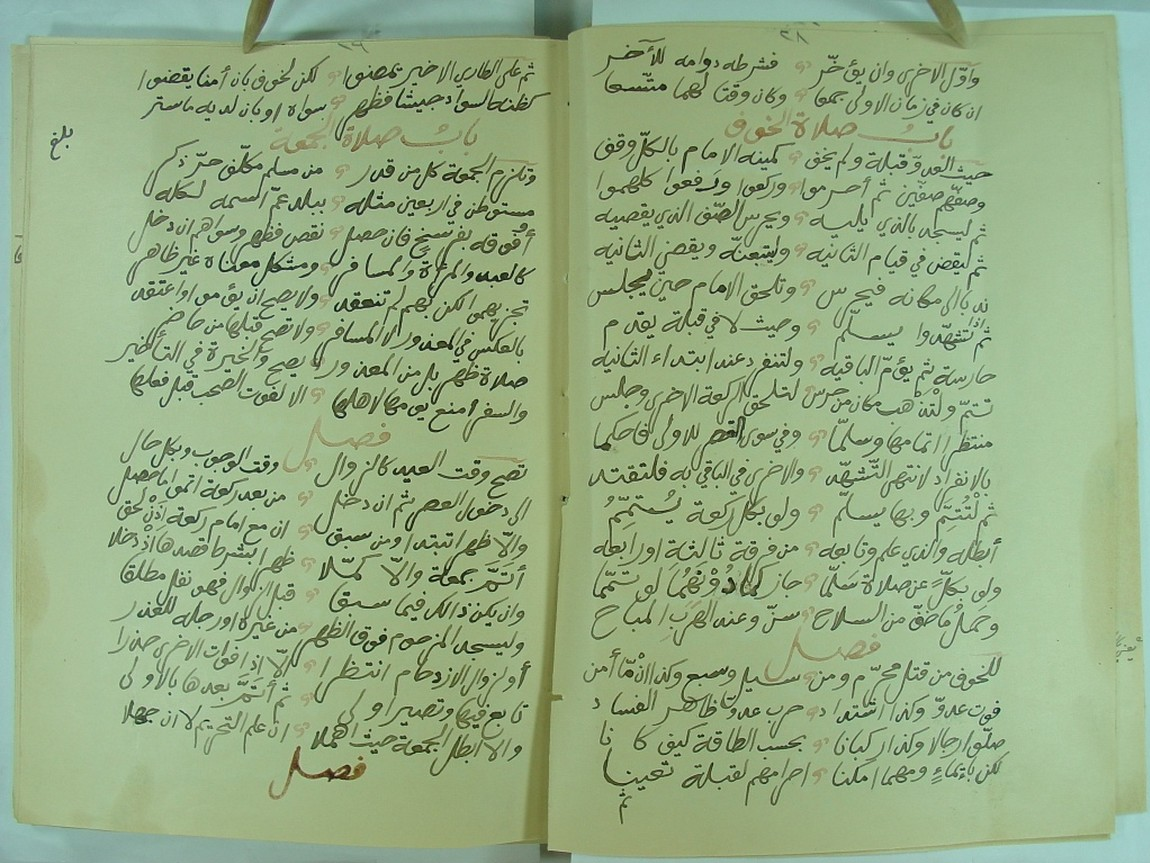 ٢٨
وأول الاخرى وان يؤخر فشرطه دوامه للآخر
ان كان في زمان الاولى جمعا وكان وقتا لهما متسعا
باب صلاة الخوف
حيث العدو قبلة ولم يخف كمينه الامام بالكل وقف
وصفهم صفين ثم أحرموا وركعوا ورفعوا كلهموا
ثم ليسجد بالذي يليه ويحرس الصف الذي يقصيه
ثم ليقض في قيام الثانيه وليتبعنه ويقضي الثانيه
ندبا الى مكانه فيحرس وتلحق الامام حين يجلس
ثم اذا تشهدوا يسلم وحيث لا في قبلة يقدم
حارسة ثم يؤم الباقيه ولتنفرد عند ابتداء الثانيه
تتم ولتذهب مكان من حرس لتلحق الركعة الاخرى وجلس
منتظرا اتمامها وسلما وفي سوى القصر للاولى فاحكما
بالانفراد لانتهى التشهد والاخرى في الباقي به فلتقتد
ثم لتتم وبها يسلم ولو بكل ركعة يستتمم
أبطله والذي علم وتابعه من فرقة ثالثة او رابعه
ولو بكل عن صلاة سلما جاز كما لو دونهما لو تمما
وحمل ما خف من السلاح سن وعند الهرب المباح
فصل
للخوف من قتل محرم ومن سيل وسبع وكذا ان ما أمن
فوت عدو وكذا اشتداد حرب عدو ظاهر الفساد
صلوا رجالا وكذا ركبانا بحسب الطاقة كيف كانا
لكن باءيماء ومهما امكنا احرامهم لقبلة تعينا
ثم
٢٩
ثم على الطاري الاخير يمضوا لكن لخوف بان أمنا يقضوا
كظنه السواد جيشا فظهر سواه او بان لديه ما ستر
باب صلاة الجمعة
بلغ
وتلزم الجمعة كل من قدر من مسلم مكلف حر ذكر
مستوطن في اربعين مثله ببلد عم اسمه لكله
أو فوقه بفرسخ فان حصل نقص فظهر وسواهم ان دخل
كالعبد والمرأة والمسافر ومشكل معناه غير ظاهر
تجزيهموا لكن بهم لم تنعقد ولا يصح ان يؤموا واعتقد
بالعكس في المعذور لا المسافر ولا تصح قبلها من حاضر
صلاة ظهر بل من المعذور يصح والخيرة في التأخير
والسفر امنع يومها لاهلها الا لفوت الصحب قبل فعلها
فصل
تصح وقت العيد كالزوال وقت الوجوب وبكل حال
الى دخول العصر ثم ان دخل من بعد ركعة اتموا ما حصل
والا ظهرا تبتدا ومن سبق ان مع امام ركعة اذن لحق
أتم جمعة والا كملا ظهرا بشرط قصدها اذ دخلا
وان يكن ذالك فيما سبقا قبل الزوال فهو نفل مطلقا
وليسجد المزحوم فوق الظهر من غيره او رجله للعذر
أو لزوال الازدحام انتظرا الا اذا فوات الاخرى حذرا
تابع فيها وتصير اولى ثم أتم بعدها بالاولى
والا ابطل الجمعة حيث اهملا ان علم التحريم لا ان جهلا
فصل